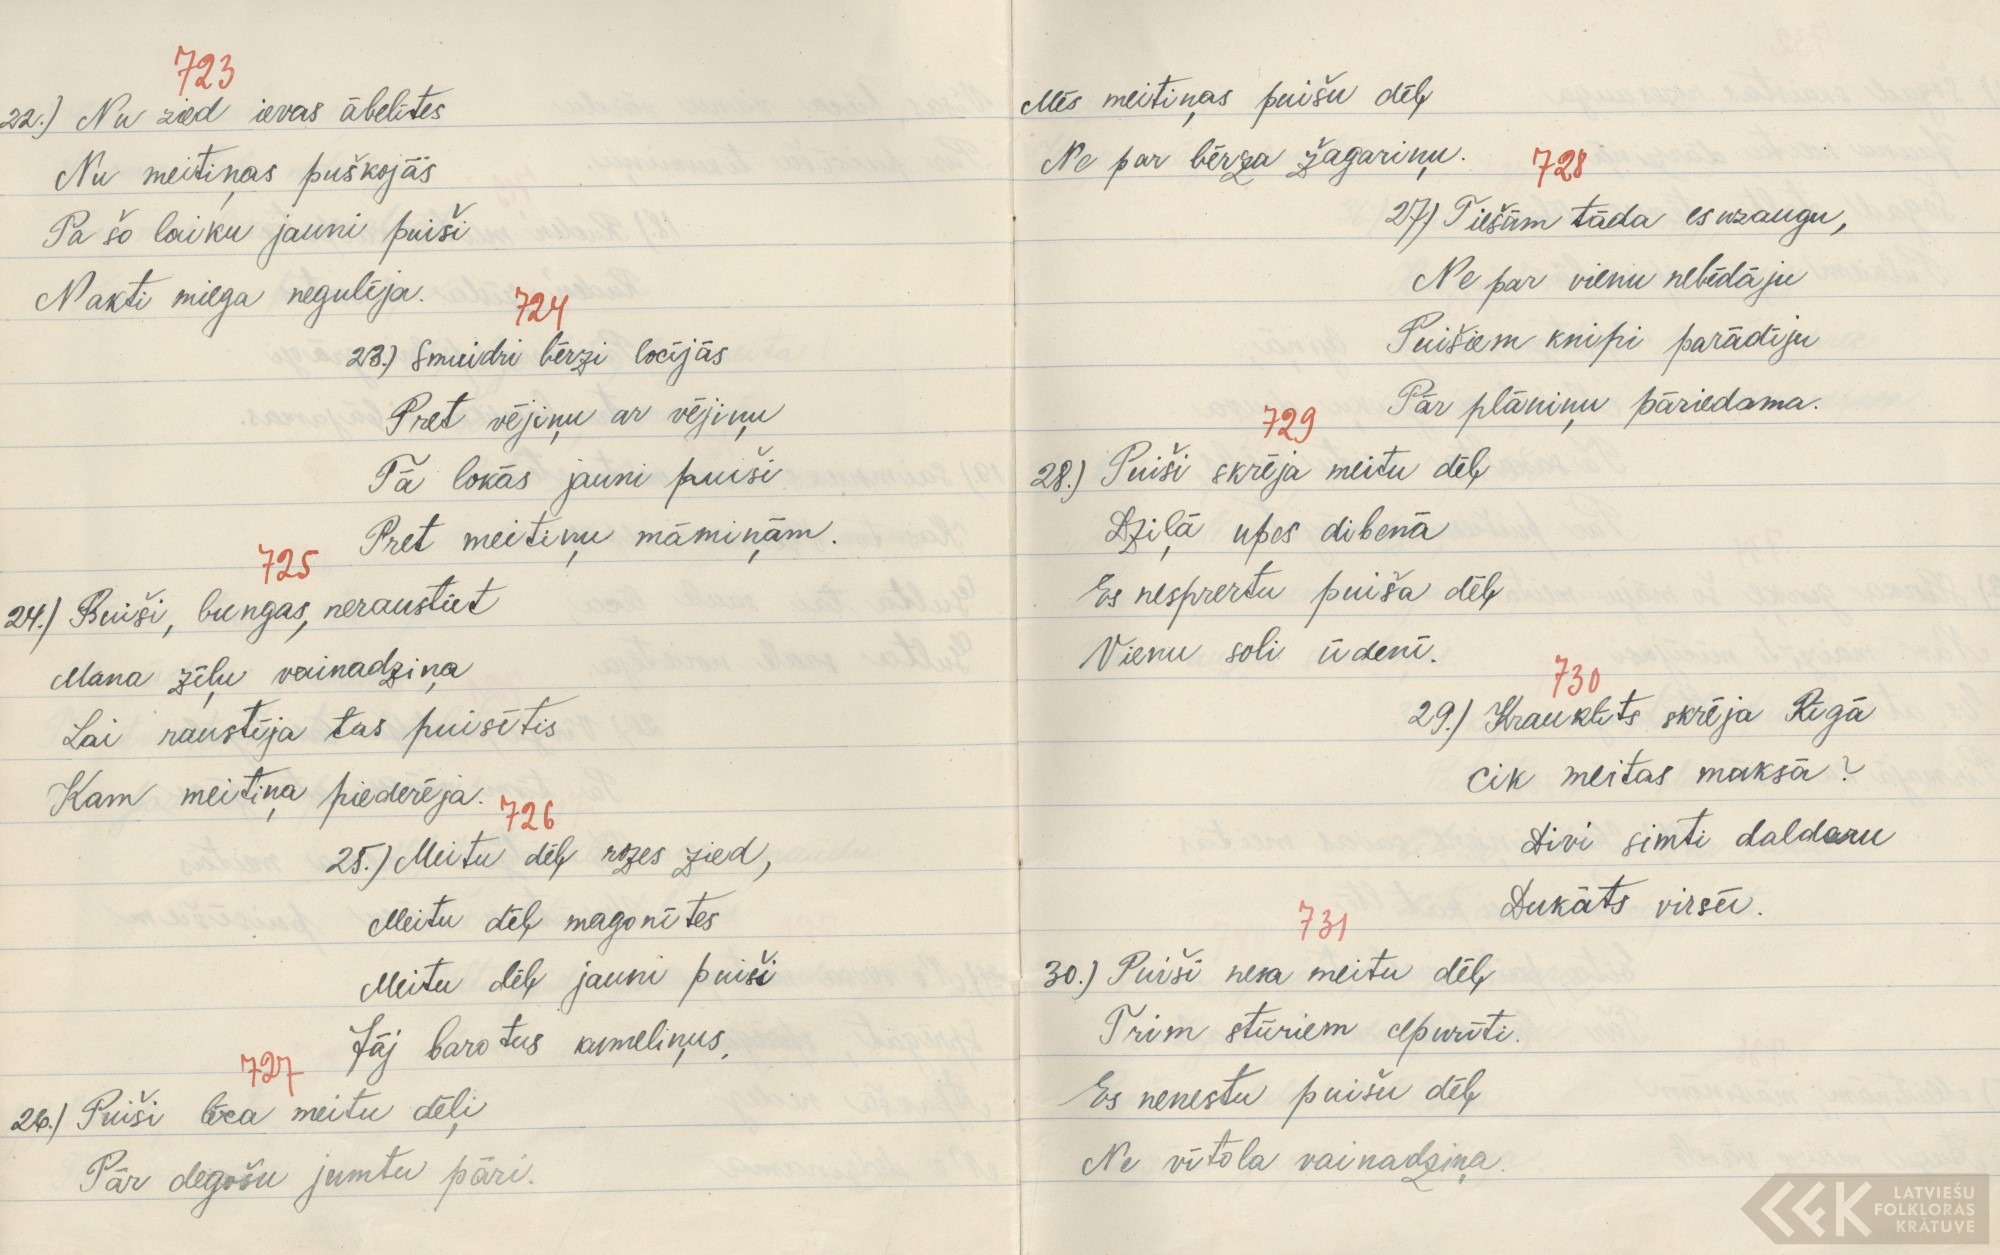 723
22.) Nu zied ievas ābelītes
Nu meitiņas puškojās
Pa šo laiku jauni puiši
Nakti miega negulēja.
724
23.) Smuidri bērzi locījās
Pret vējiņu ar vējiņu
Tā lokās jauni puiši
Pret meitiņu māmiņām.
725
24.) Puiši, bungas, neraustiet
Mana zīļu vainadziņa
Lai raustīja tas puisītis
Kam meitiņa piederēja.
726
25.) Meitu dēļ rozes zied,
Meitu dēļ magonītes
Meitu dēļ jauni puiši
Jāj barotus kumeliņus.
727
26.) Puiši lēca meitu dēļi
Pār degošu jumtu pāri.
Mēs meitiņas puišu dēļ
Ne par bērza žagariņu.
728
27) Tiešām tāda es uzaugu,
Ne par vienu nebēdāju
Puišiem knipi parādīju
Pār plāniņu pāriedama.
729
28.) Puiši skrēja meitu dēļ
Dziļā upes dibenā
Es nesprertu puiša dēļ
Vienu soli ūdenī.
730
29.) Krauklīts skrēja Rīgā
Cik meitas maksā?
Divi simti daldaru
Dukāts virsū.
731
30.) Puiši nesa meitu dēļ
Trim stūriem cepurīti.
Es nenestu puišu dēļ
Ne vītola vainadziņa.
LATVIEŠU
FOLKLORAS
KRĀTUVE